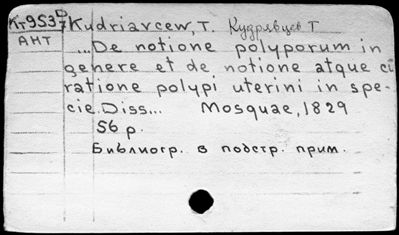 Кт953D/7 Kudriavcew, T. Кудрявцев Т
АНТ
...De notione polyporum in
genere et de notione atque cu
ratione polypi uterini in spe-
cie. Diss... Mosquae, 1829
56 p.
Библиогр. в подстр. прим.